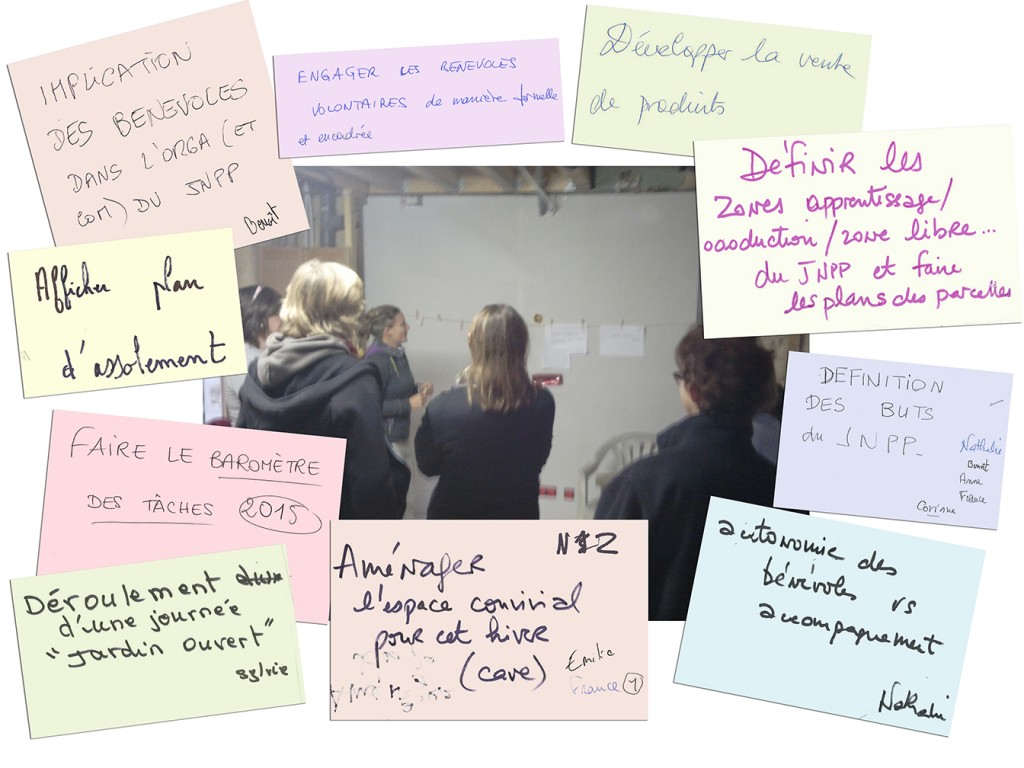 IMPLICATION
DES BENEVOLES
DANS L'ORGA (ET
COM) DU JNPP
Benoît
ENGAGER LES BENEVOLES
VOLONTAIRES de manière formelle
et encadrée
Développer la vente
de produits
Définir les
zones apprentissage/
production/zone libre...
du JNPP et faire
les plans des parcelles
Afficher plan
d'assolement
DEFINITION
DES BUTS
du JNPP
Nathalie
Benoît
Anne
France
Corinne
FAIRE LE BAROMÈTRE
DES TÂCHES 2015
Déroulement
d'une journée
"Jardin ouvert"
sylvie
Aménager
l'espace convivial
pour cet hiver
(cave)
Emilie
France 1
autonomie des
bénévoles vs
accompagnement
Nathalie